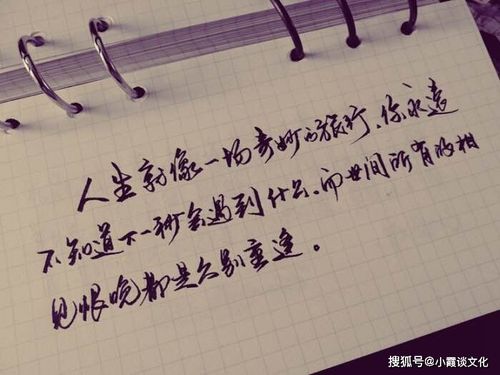 人生就像一场奇妙的旅行、你永远
不知道下一秒会遇到什么、而世间所有的相
见恨晚都是久别重逢。
搜狐号@小霞谈文化